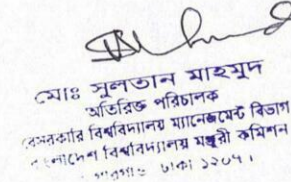 মোঃ সুলতান মাহমুদ
অতিরিক্ত পরিচালক
বেসরকারি বিশ্ববিদ্যালয় ম্যানেজমেন্ট বিভাগ
বাংলাদেশ বিশ্ববিদ্যালয় মঞ্জুরী কমিশন
ঢাকা ১২০৭।